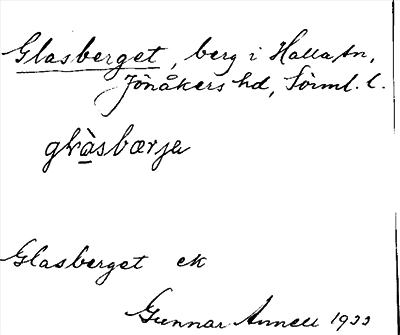 Glasberget, berg i Halla sn,
Jönåkers hd, Sörml. l.
glàsbærje
Glasberget ek
Gunnar Annell 1933